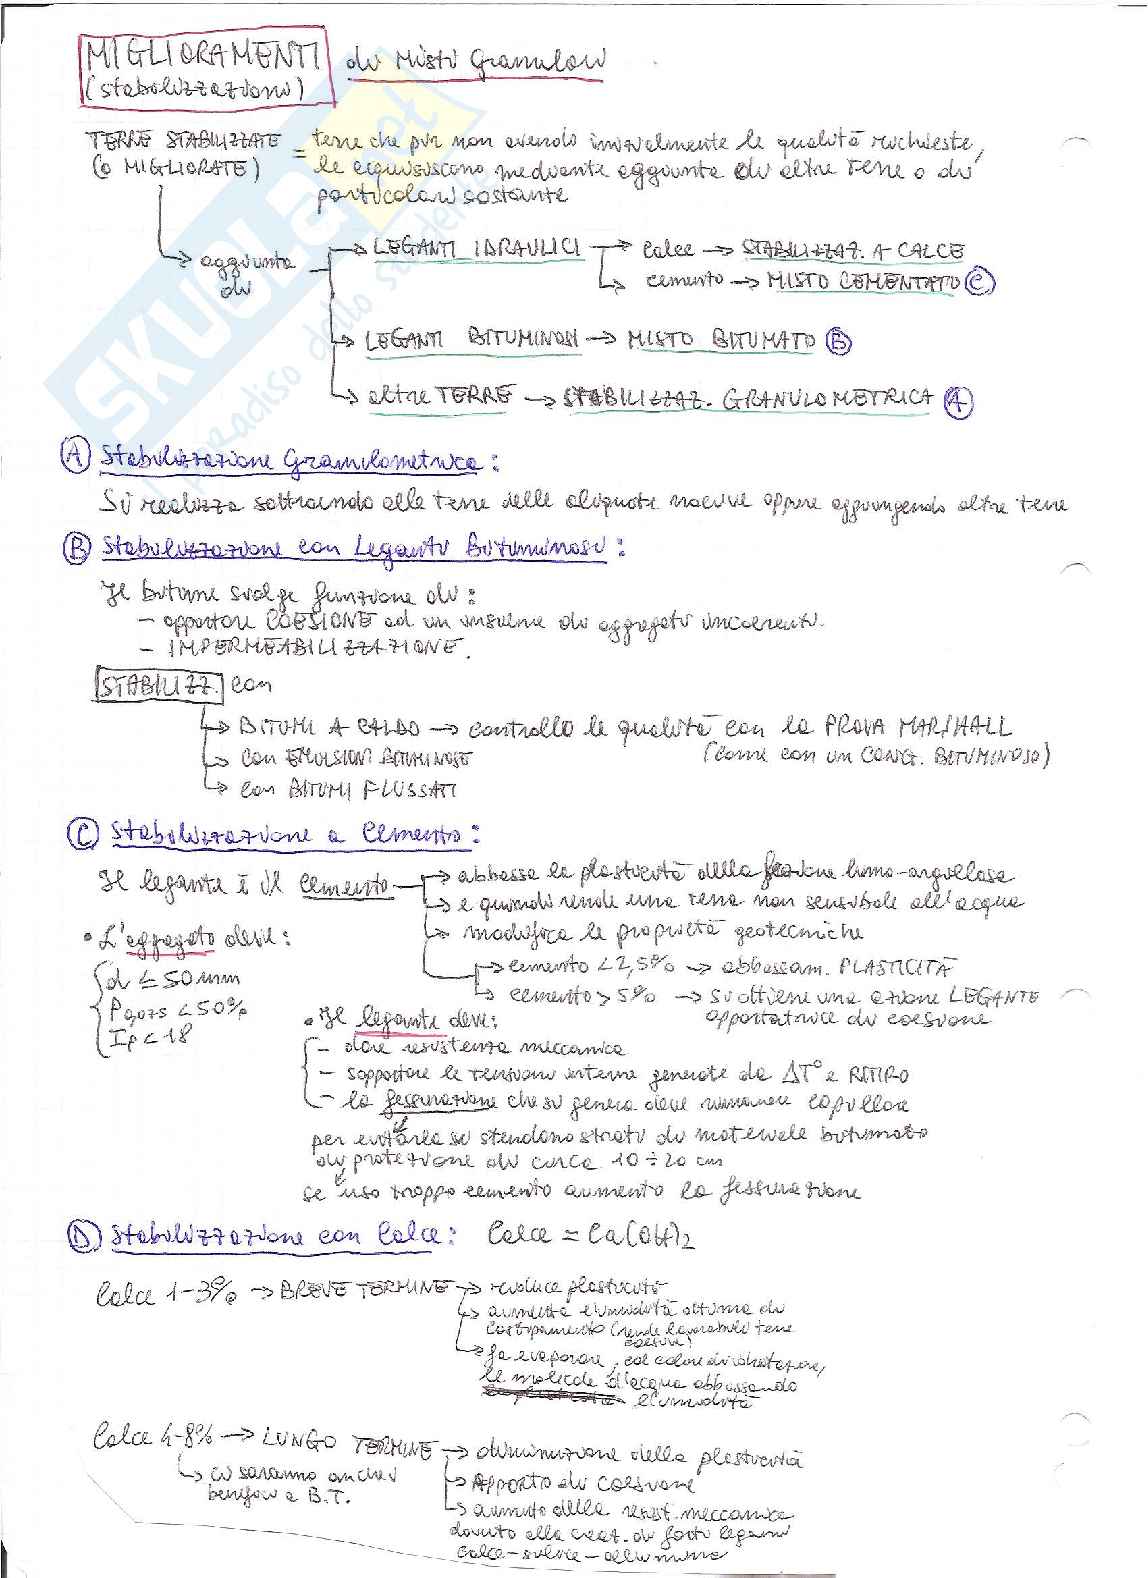 MIGLIORAMENTI di Misti Granulari
(stabilizzazioni)
TERRE STABILIZZATE = terre che pur non avendo inizialmente le qualità richieste,
(o MIGLIORATE) le acquisiscono mediante aggiunta di altre terre o di
particolari sostante
aggiunta di
→ LEGANTI IDRAULICI → calce → STABILIZZAZ. A CALCE
↳ cemento → MISTO CEMENTATO (C)
→ LEGANTI BITUMINOSI → MISTO BITUMATO (B)
→ altre TERRE → STABILIZZAZ. GRANULOMETRICA (A)
SKUOLA.net
il paradiso dello studente
(A) Stabilizzazione Granulometrica:
Si realizza sottraendo alle terre delle aliquote nocive oppure aggiungendo altre terre
(B) Stabilizzazione con Leganti Bituminosi:
Il bitume svolge funzione di:
- apportare COESIONE ad un insieme di aggregati incoerenti.
- IMPERMEABILIZZAZIONE.
STABILIZZ. con
→ BITUMI A CALDO → controllo le qualità con la PROVA MARSHALL
(come con un CONG. BITUMINOSO)
→ con EMULSIONI BITUMINOSE
→ con BITUMI FLUSSATI
(C) Stabilizzazione a Cemento:
Il legante è il cemento → abbassa la plasticità della frazione limo-argillosa
→ e quindi rende una terra non sensibile all'acqua
→ modifica le proprietà geotecniche
→ cemento < 2,5% → abbassam. PLASTICITÀ
→ cemento > 5% → si ottiene una azione LEGANTE
apportatrice di coesione
• L'aggregato deve:
d ≤ 50 mm
P0,075 < 50%
Ip < 18
• Il legante deve:
- dare resistenza meccanica
- sopportare le tensioni interne generate da ΔT° e RITIRO
- la fessurazione che si genera deve rimanere capillare
per evitarla si stendono strati di materiale bitumato
di protezione di circa 10 ÷ 20 cm
se uso troppo cemento aumento la fessurazione
(D) Stabilizzazione con Calce: Calce = Ca(OH)2
Calce 1-3% → BREVE TERMINE → riduce plasticità
→ aumenta l'umidità ottima di
costipamento (rende lavorabili terre
coesive)
→ fa evaporare, col calore di idratazione,
le molecole d'acqua abbassando
l'umidità
Calce 4-8% → LUNGO TERMINE → diminuzione della plasticità
↳ ci saranno anche i
benefici a B.T.
→ APPORTO di COESIONE
→ aumento della resist. meccanica
dovuto alla creaz. di forti legami
calce-silice-allumina